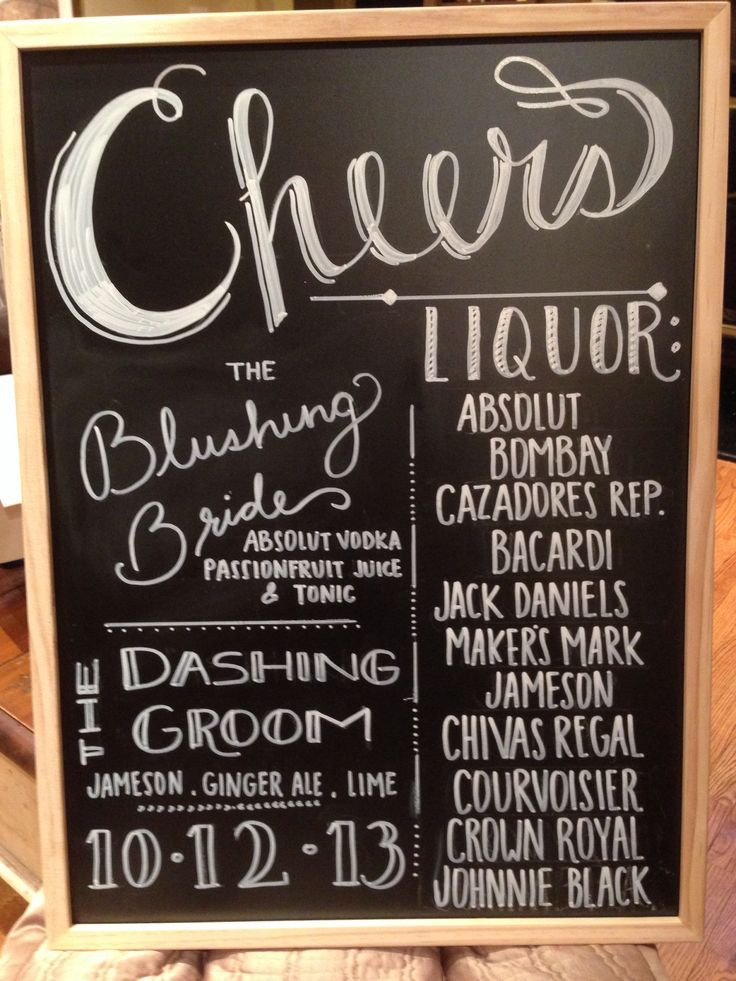 Cheers
THE
Blushing
Bride
ABSOLUT VODKA
PASSIONFRUIT JUICE
& TONIC
THE DASHING
GROOM
JAMESON . GINGER ALE . LIME
10·12·13
LIQUOR:
ABSOLUT
BOMBAY
CAZADORES REP.
BACARDI
JACK DANIELS
MAKER'S MARK
JAMESON
CHIVAS REGAL
COURVOISIER
CROWN ROYAL
JOHNNIE BLACK